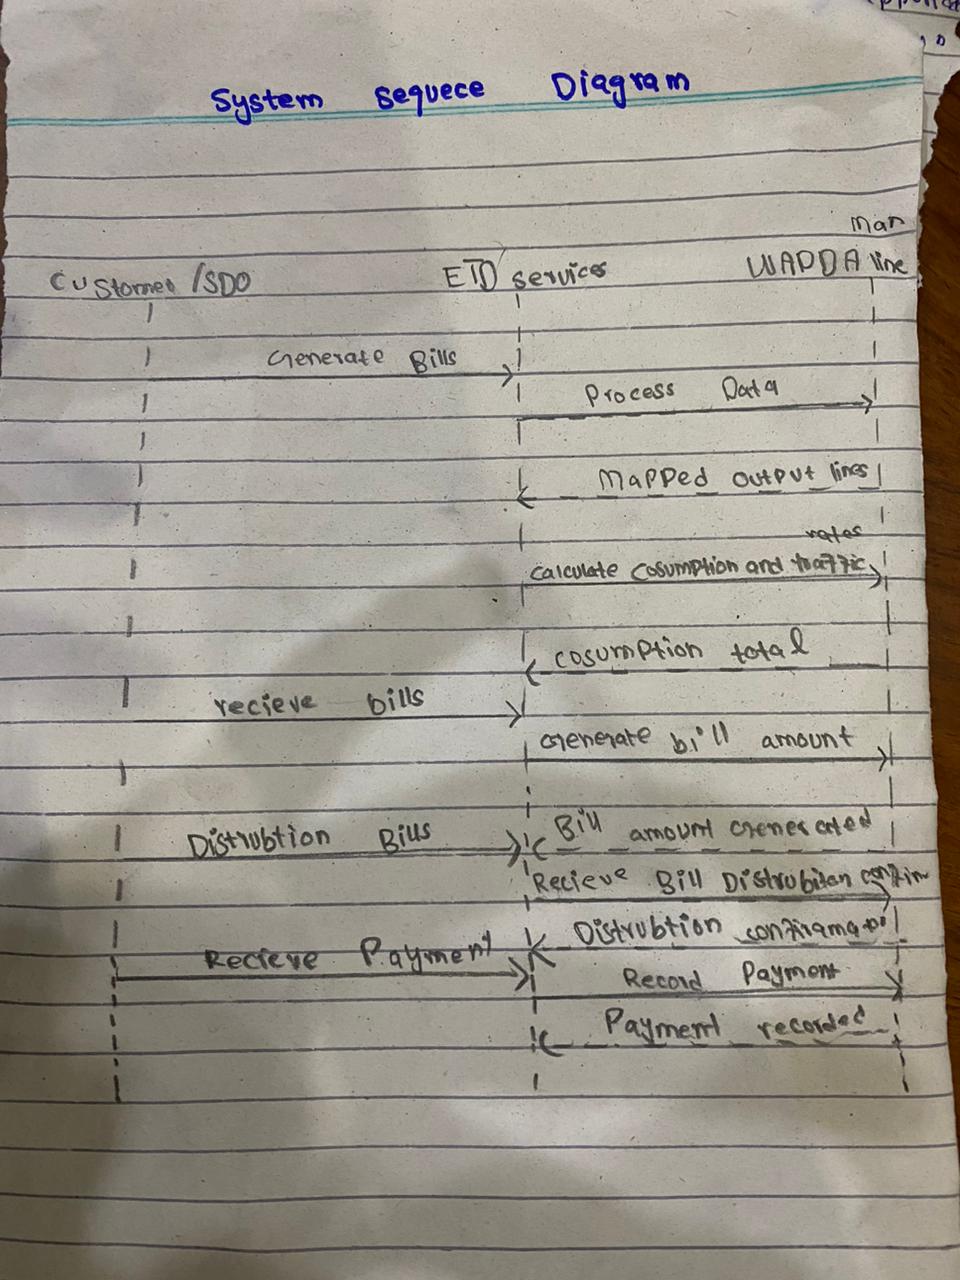 System Sequece Diagram
Man
Customer /SDO ETD services WAPDA line
Generate Bills
Process Data
Mapped output lines
rates
calculate cosumption and traffic
cosumption total
recieve bills
Generate bill amount
Distrubtion Bills
Bill amount Generated
Recieve Bill Distrubiton confirm
Distrubtion confiramatio
Recieve Payment
Record Payment
Payment recorded